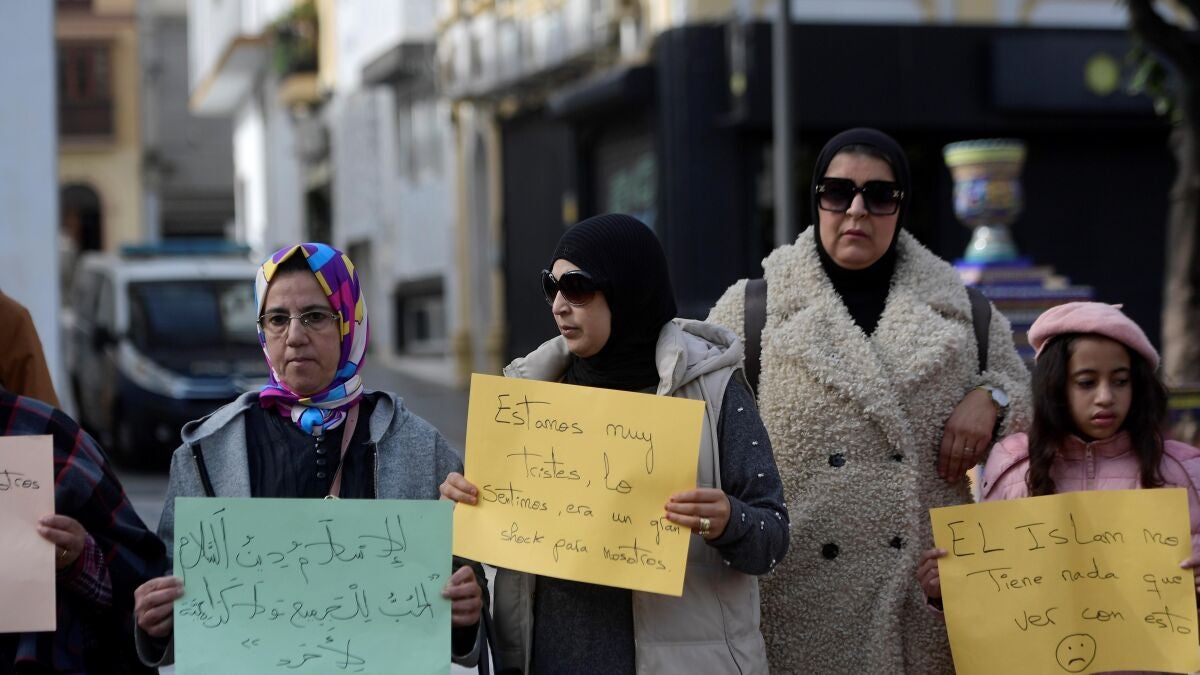 tros
الإسلام دِينُ السَّلام
"الحُبُّ لِلجميع ولا كراهية
لِأَحد"
Estamos muy
tristes, lo
Sentimos, era un gran
shock para nosotros.
EL Islam no
Tiene nada que
ver con esto